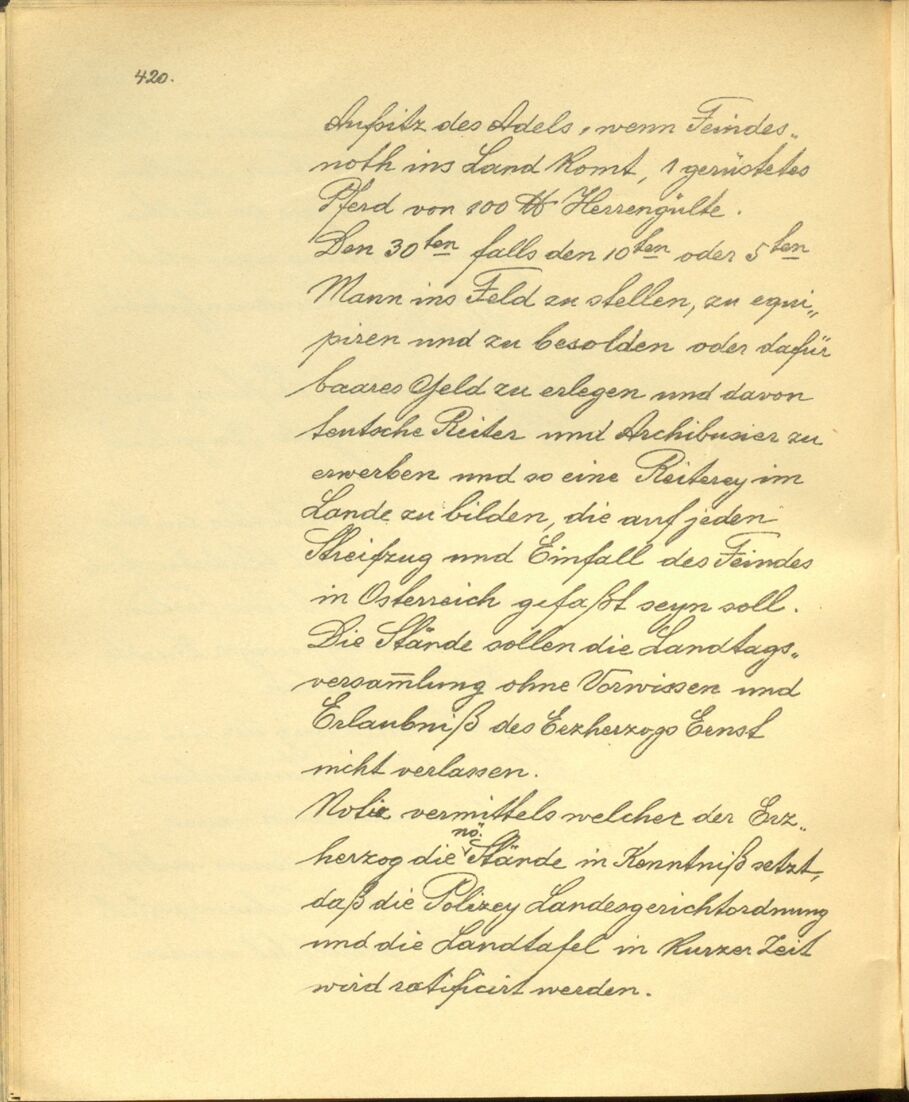 420.
Aufsitz des Adels, wenn Feindes„
noth ins Land komt, 1 gerüstetes
Pferd von 100 ℔ Herrengülte.
Den 30ten falls den 10ten oder 5ten
Mann ins Feld zu stellen, zu equi„
piren und zu besolden oder dafür
baares Geld zu erlegen und davon
teutsche Reiter und Archibusier zu
erwerben und so eine Reiterey im
Lande zu bilden, die auf jeden
Streifzug und Einfall des Feindes
in Osterreich gefaßt seyn soll.
Die Stände sollen die Landtags„
versam̅lung ohne Vorwissen und
Erlaubniß des Erzherzogs Ernst
nicht verlassen.
Notiz vermittels welcher der Erz„
herzog die nö. Stände in Kenntniß setzt,
daß die Polizey Landesgerichtordnung
und die Landtafel in kurzer Zeit
wird ratificirt werden.